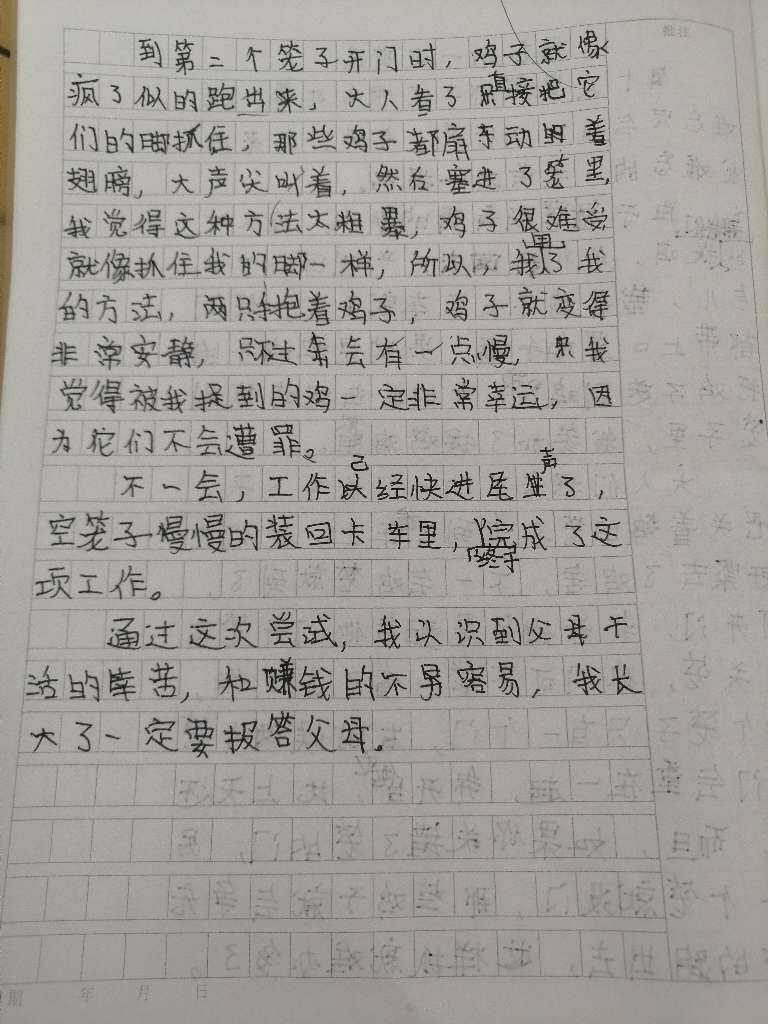 批注
到第二个笼子开门时，鸡子就像
疯了似的跑出来，大人看了直接把它
们的脚抓住，那些鸡子都扇动着
翅膀，大声尖叫着，然后塞进了笼里，
我觉得这种方法太粗暴，鸡子很难受
就像抓住我的脚一样，所以，我用了我
的方法，两只手抱着鸡子，鸡子就变得
非常安静，只不过会有一点慢，我
觉得被我捉到的鸡一定非常幸运，因
为它们不会遭罪。
不一会，工作已经快进尾声了，
空笼子慢慢的装回卡车里，终于完成了这
项工作。
通过这次尝试，我认识到父母干
活的辛苦，和赚钱的不容易，我长
大了一定要报答父母。
年 月 日